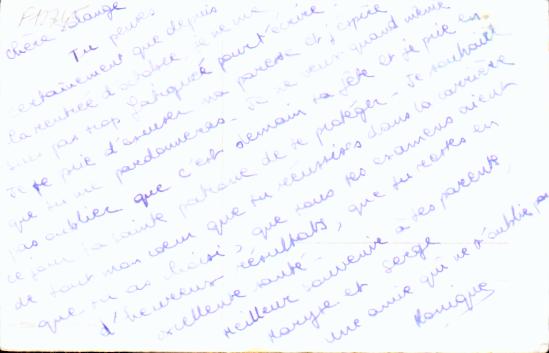 Chère Solange
Tu penses
certainement que depuis
la rentrée d'octobre je ne me
suis pas trop fatiguée pour t'écrire.
Je te prie d'excuser ma paresse et j'espère
que tu me pardonneras. Je ne veux quand même
pas oublier que c'est demain ta fête et je prie en
ce jour la sainte patronne de te protéger. Je souhaite
de tout mon cœur que tu réussisses dans la carrière
que tu as choisi, que tous tes examens aient
d'heureux résultats, que tu restes en
excellente santé.
Meilleur souvenir à tes parents,
Maryse et Serge
une amie qui ne t'oublie pas
Monique